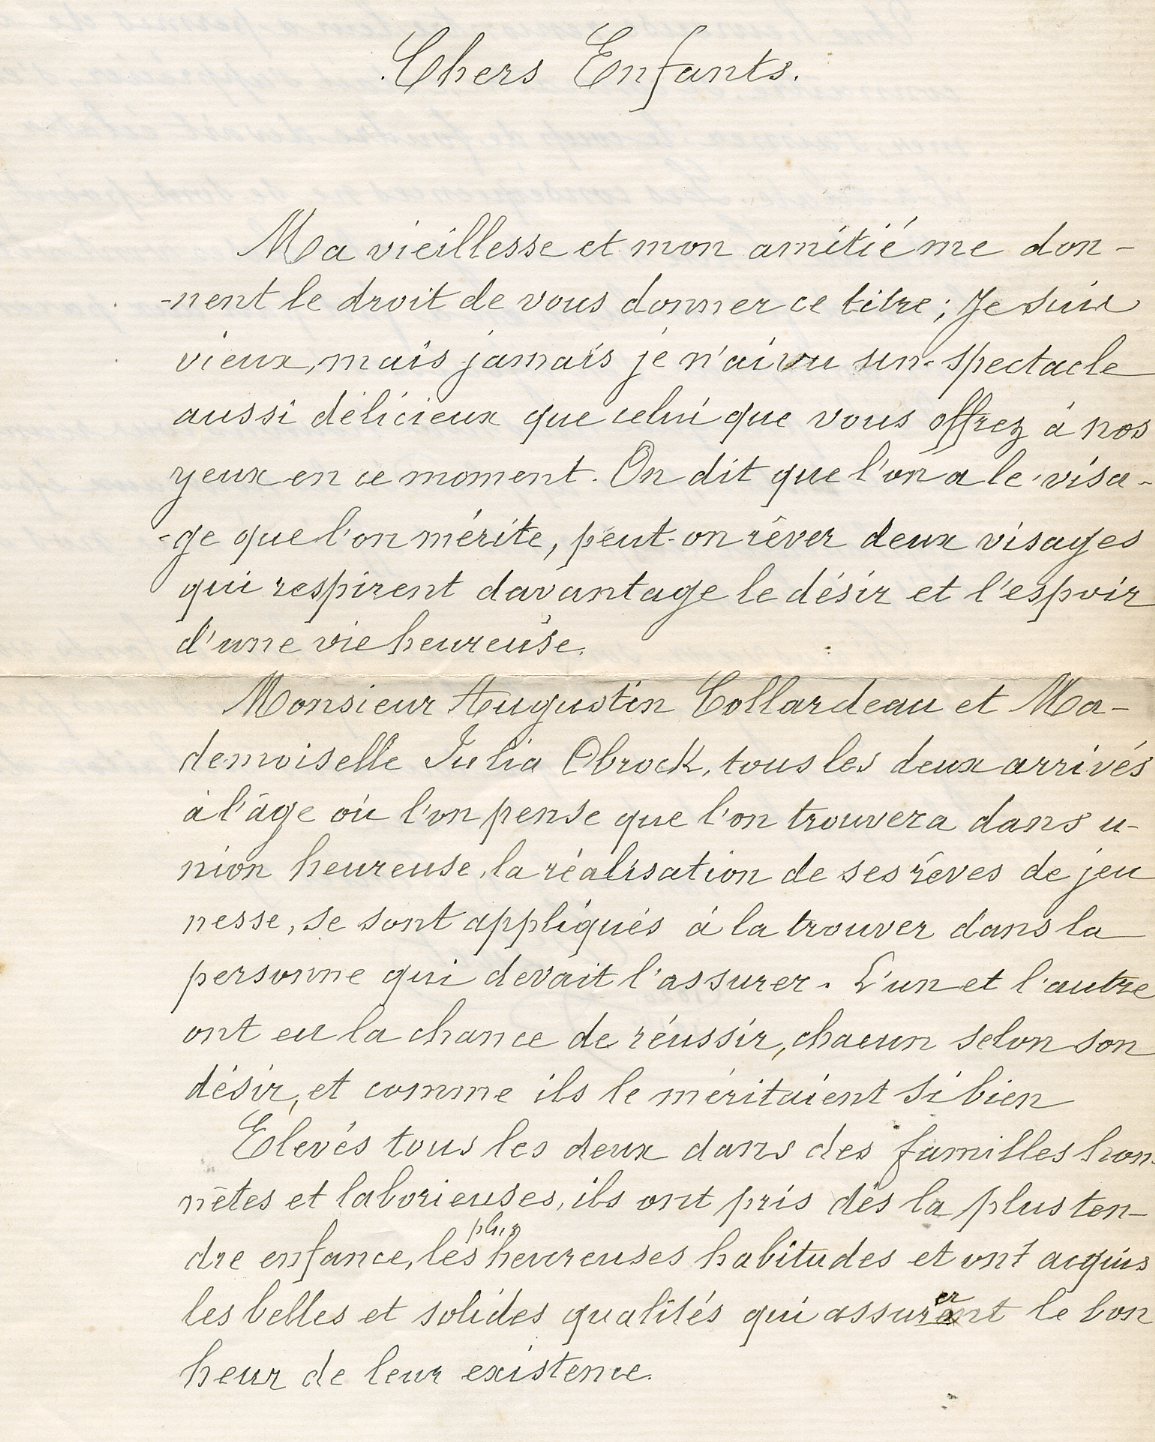 Chers Enfants.
Ma vieillesse et mon amitié me don-
-nent le droit de vous donner ce titre; Je suis
vieux, mais jamais je n'ai vu un spectacle
aussi délicieux que celui que vous offrez à nos
yeux en ce moment. On dit que l'on a le visa-
-ge que l'on mérite, peut-on rêver deux visages
qui respirent davantage le désir et l'espoir
d'une vie heureuse.
Monsieur Augustin Collardeau et Ma-
demoiselle Julia Obrock, tous les deux arrivés
à l'âge où l'on pense que l'on trouvera dans u-
nion heureuse, la réalisation de ses rêves de jeu
nesse, se sont appliqués à la trouver dans la
personne qui devait l'assurer. L'un et l'autre
ont eu la chance de réussir, chacun selon son
désir, et comme ils le méritaient si bien
Elevés tous les deux dans des familles hon-
nêtes et laborieuses, ils ont pris dès la plus ten-
dre enfance, les plus heureuses habitudes et ont acquis
les belles et solides qualités qui assurèrent le bon
heur de leur existence.